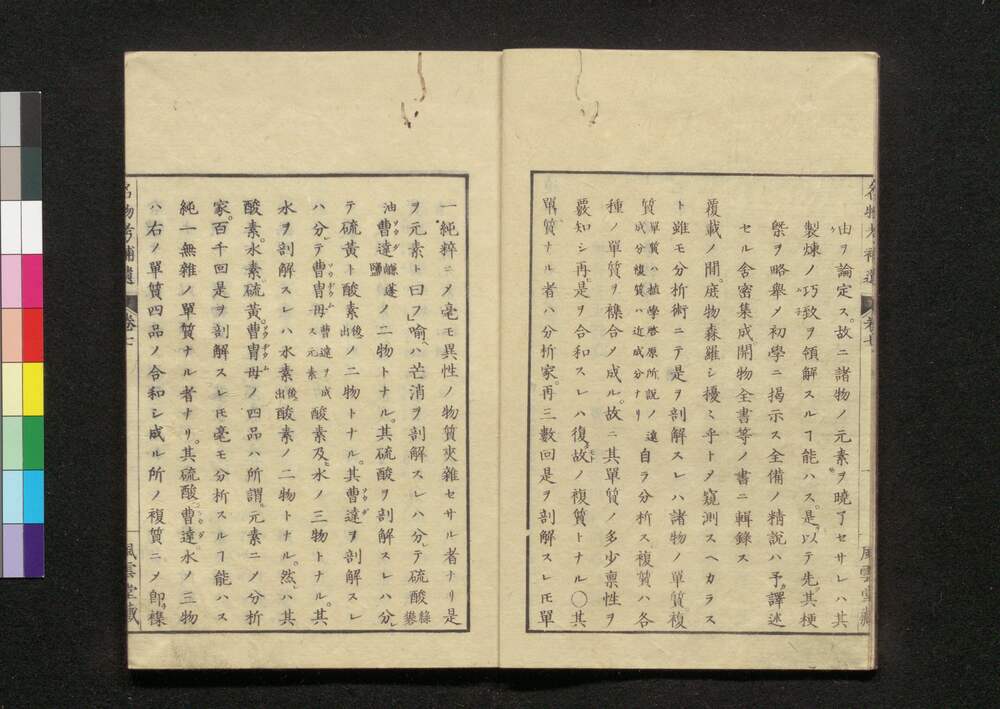 油ヲ論定ス。故ニ諸物ノ元素ヲ曉了セサレハ其
製煉ノ巧致ヲ領解スルヿ能ハス。是ヲ以テ先其梗
槩ヲ略舉メ初學ニ揭示ス全備ノ精說ハ予。譯述
セル舍密集成。開物全書等ノ書ニ輯錄ス
覆載ノ間。庶物森羅シ擾々乎トメ窺測スヘカラス
ト雖モ分析術ニテ是ヲ剖解スレハ諸物ノ單質複
質單質ハ植學啓原所說ノ遠成分複質ハ近成分ナリ自ラ分析ス複質ハ各
種ノ單質ヲ襍合メ成ル。故ニ其單質ノ多少禀性ヲ
覈知シ再是ヲ合和スレハ復故ノ複質トナル〇其
單質ナル者ハ分析家。再三數回是ヲ剖解スレ𪜈單
名物考補遺 卷七 一 風雲堂藏
一純粹ニメ毫モ異性ノ物質夾雜セサル者ナリ是
ヲ元素ト曰フ喻ヘハ芒消ヲ剖解スレハ分テ硫酸綠礬
油曹達鹻蓬鹽ノ二物トナル。其硫酸ヲ剖解スレハ分
テ硫黃ト酸素後出ノ二物トナル。其曹達ヲ剖解スレ
ハ分テ曹冑母曹達ヲ成ス元素酸素及水ノ三物トナル。其
水ヲ剖解スレハ水素後出酸素ノ二物トナル。然ハ其
酸素。水素。硫黃。曹冑母ノ四品ハ所謂元素ニメ分析
家。百千回是ヲ剖解スレ𪜈毫モ分析スルヿ能ハス
純一無雜ノ單質ナル者ナリ。其硫酸。曹達。水ノ三物
ハ右ノ單質四品ノ合和シ成ル所ノ複質ニメ卽襍
名物考補遺 卷七 風雲堂藏